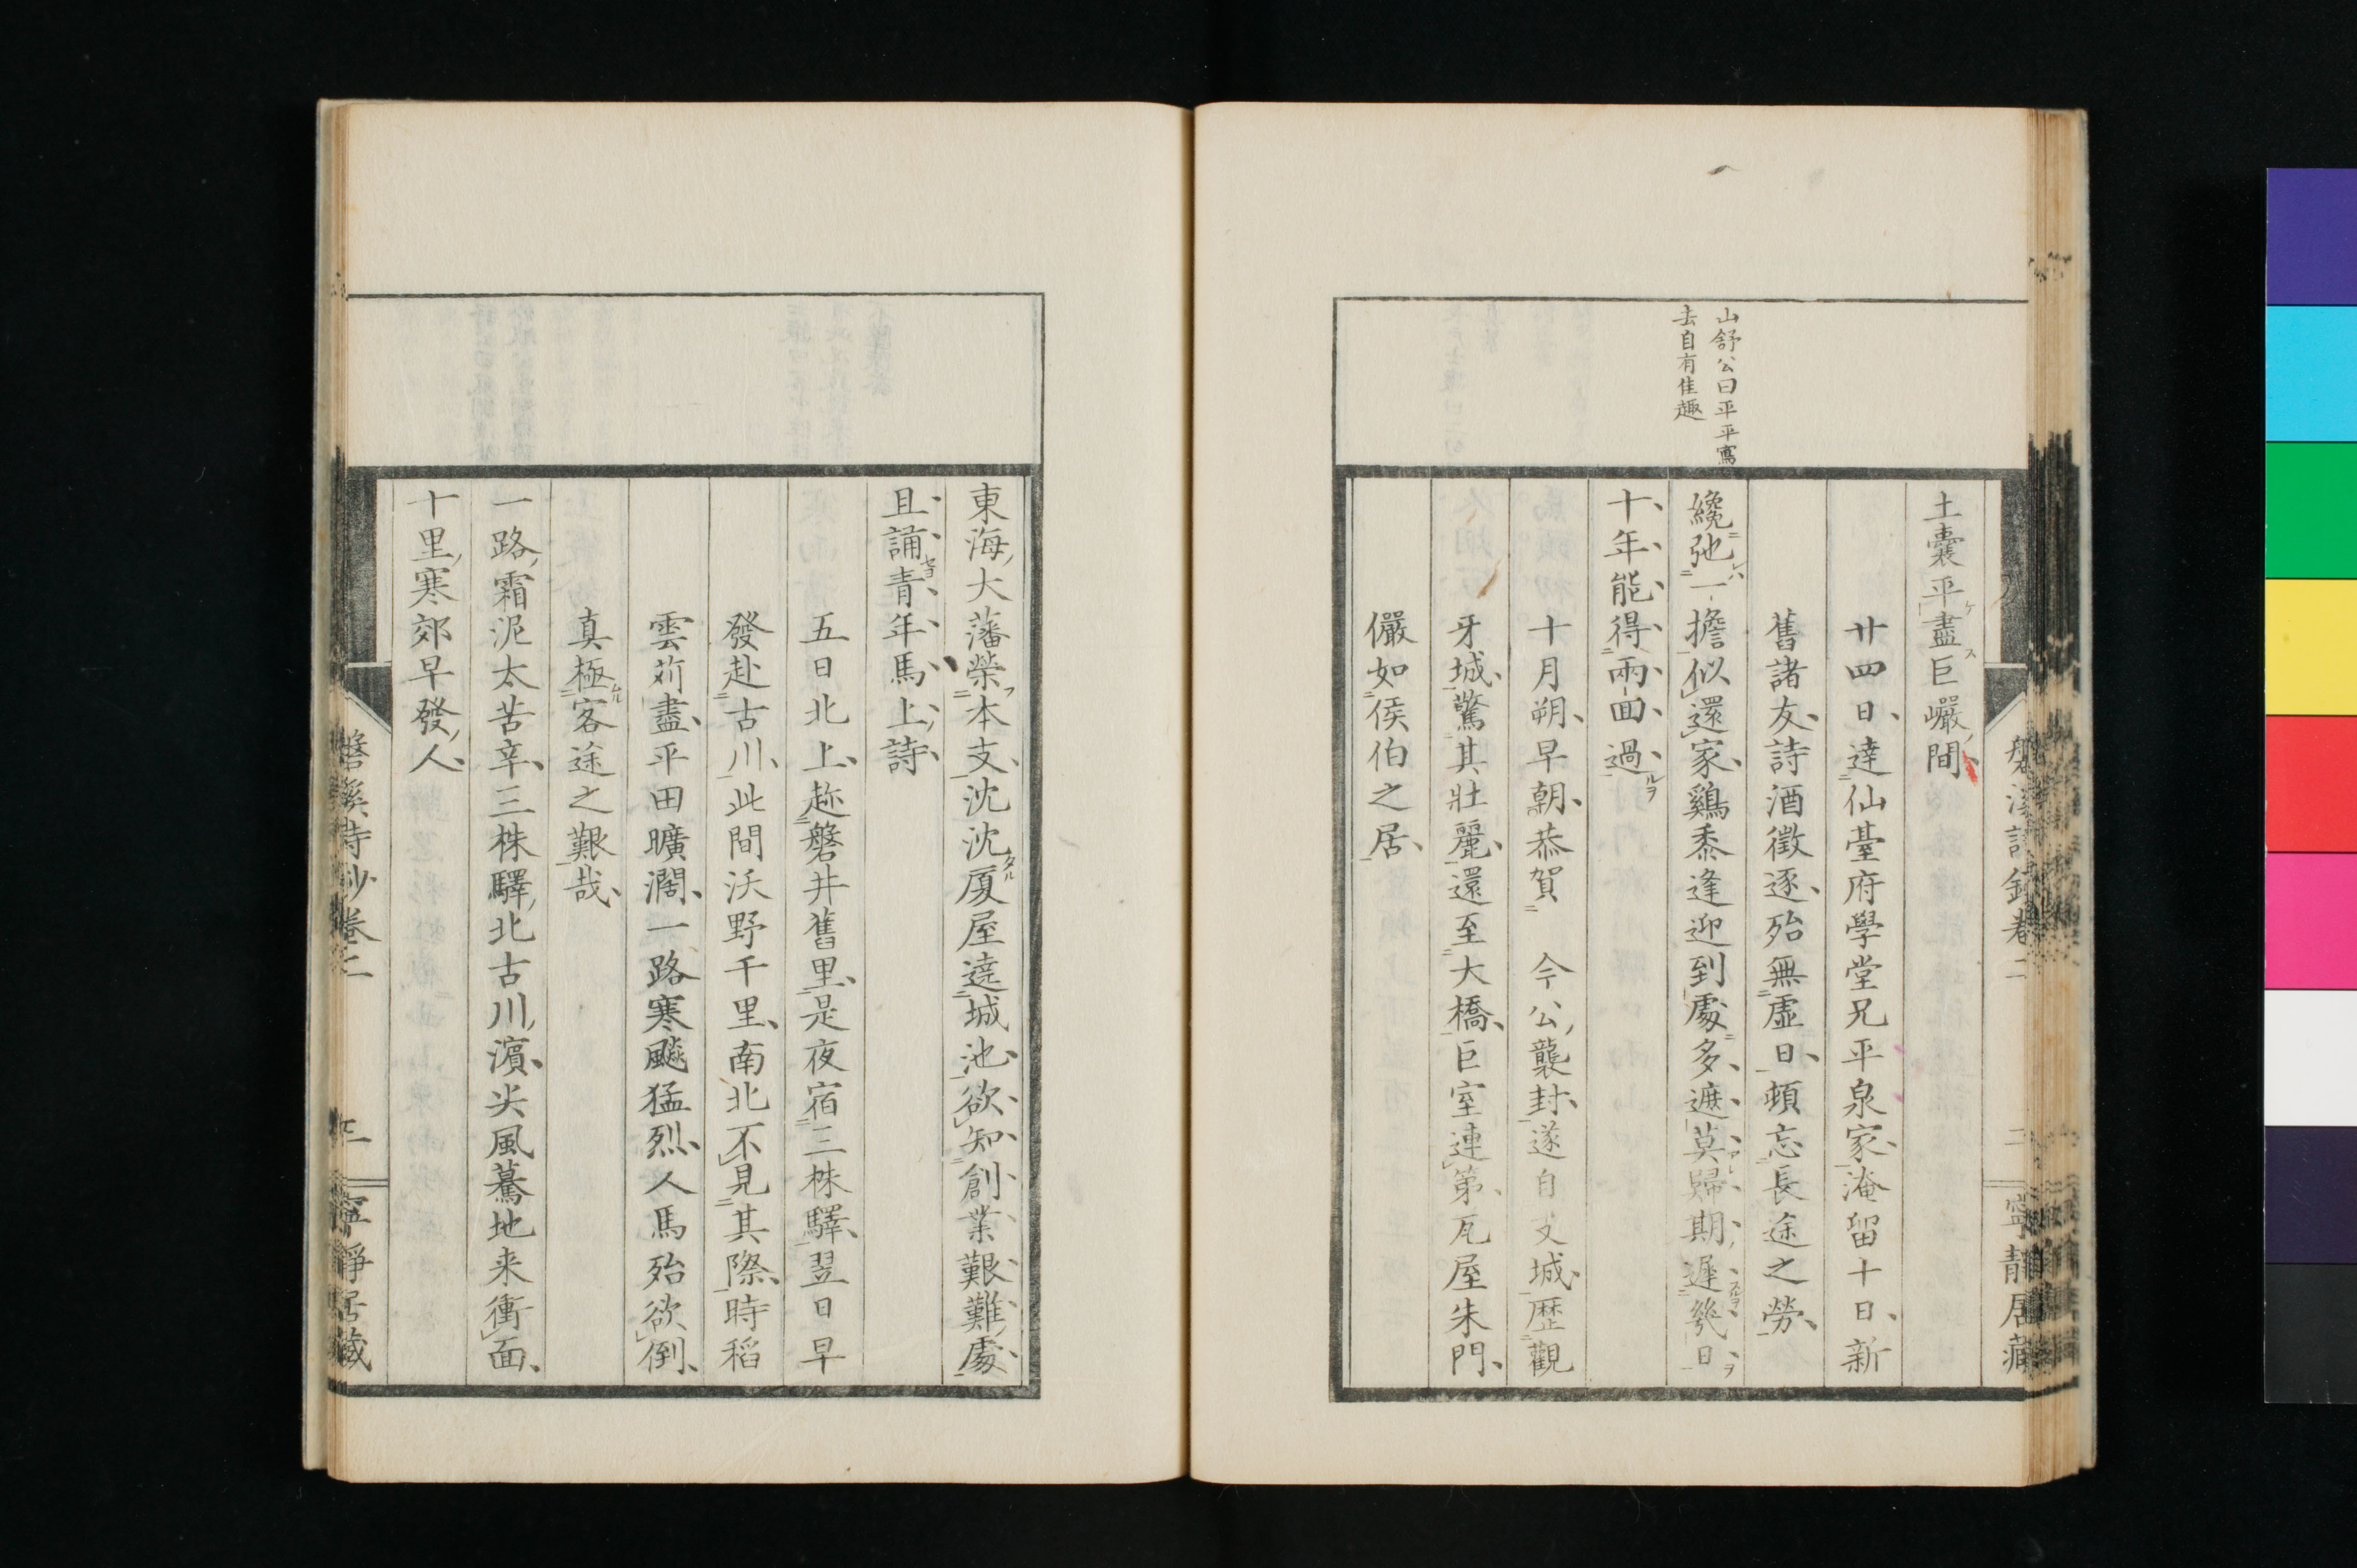 山舒公曰平平寫
去自有佳趣
土囊平盡巨巖間
廿四日達仙臺府學堂兄平泉家淹留十日新
舊諸友詩酒徵逐殆無虛日頓忘長途之勞
纔弛一擔似還家鷄黍逢迎到處多遮莫歸期遲幾日
十年能得兩回過
十月朔早朝恭賀 今公襲封遂自支城歷觀
牙城驚其壯麗還至大橋巨室連第瓦屋朱門
儼如侯伯之居
東海大藩榮本支沈沈厦屋遶城池欲知創業艱難處
且誦青年馬上詩
五日北上趂磐井舊里是夜宿三株驛翌日早
發赴古川此間沃野千里南北不見其際時稻
雲苅盡平田曠濶一路寒飈猛烈人馬殆欲倒
真極客途之艱哉
一路霜泥太苦辛三株驛北古川濵尖風驀地来衝面
十里寒郊早發人
磐溪詩鈔卷二
三
寧靜居藏